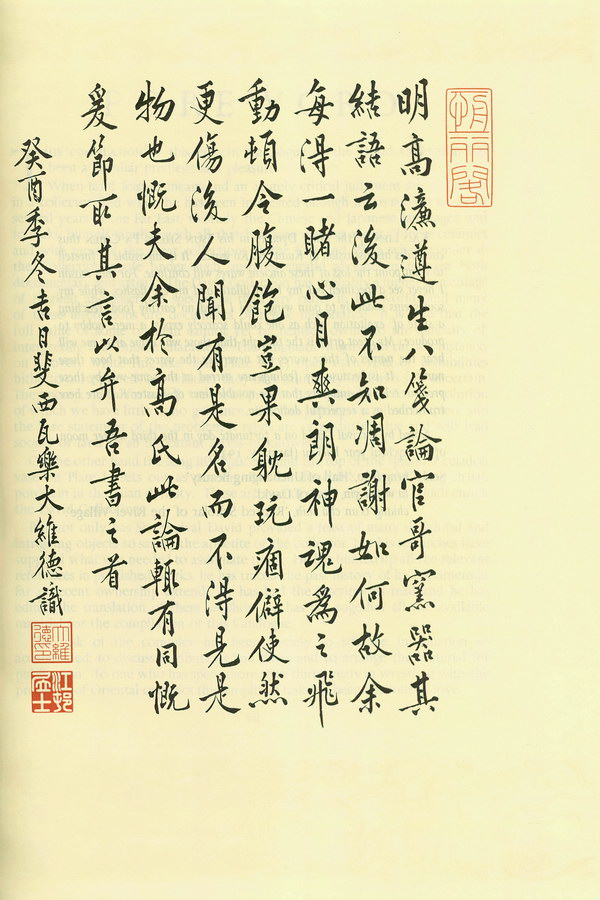 明高濂遵生八箋論官哥窰器其
結語云後此不知凋謝如何故余
每得一睹心目爽朗神魂為之飛
動頓令腹飽豈果躭玩痼僻使然
更傷後人聞有是名而不得見是
物也慨夫余於高氏此論輒有同慨
爰節取其言以弁吾書之首
癸酉季冬吉日斐西瓦樂大維德識
大維德印